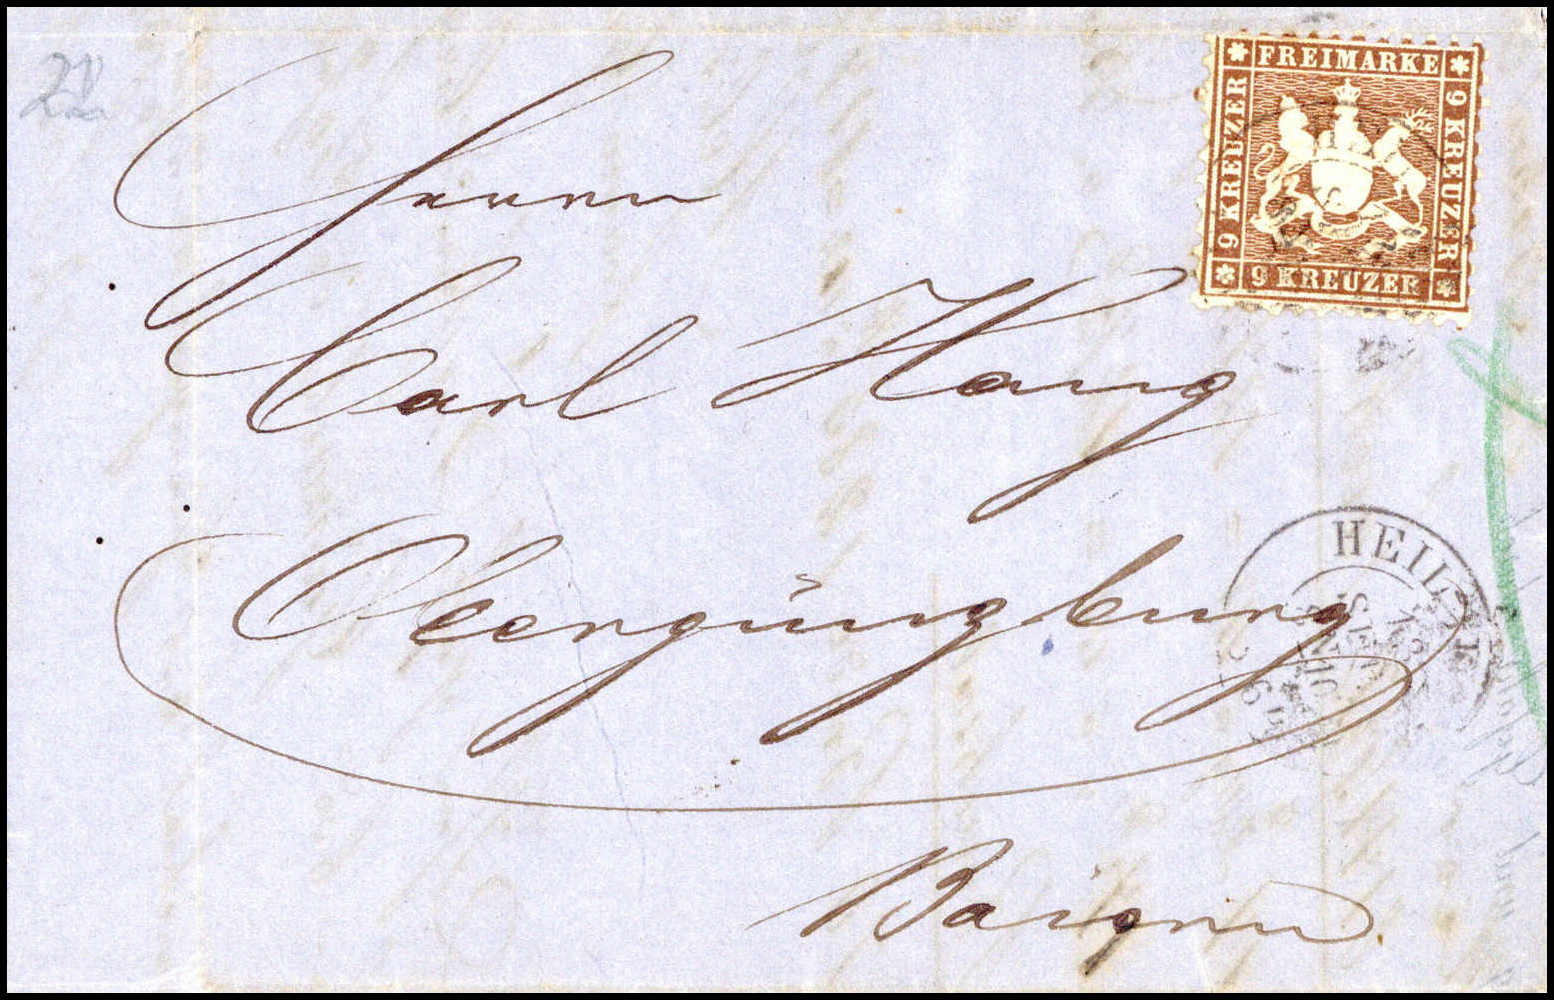 22
FREIMARKE
9 KREUZER
9 KREUZER
9 KREUZER
Herrn
Carl Haug
Obergünzburg
Baiern
HEIL